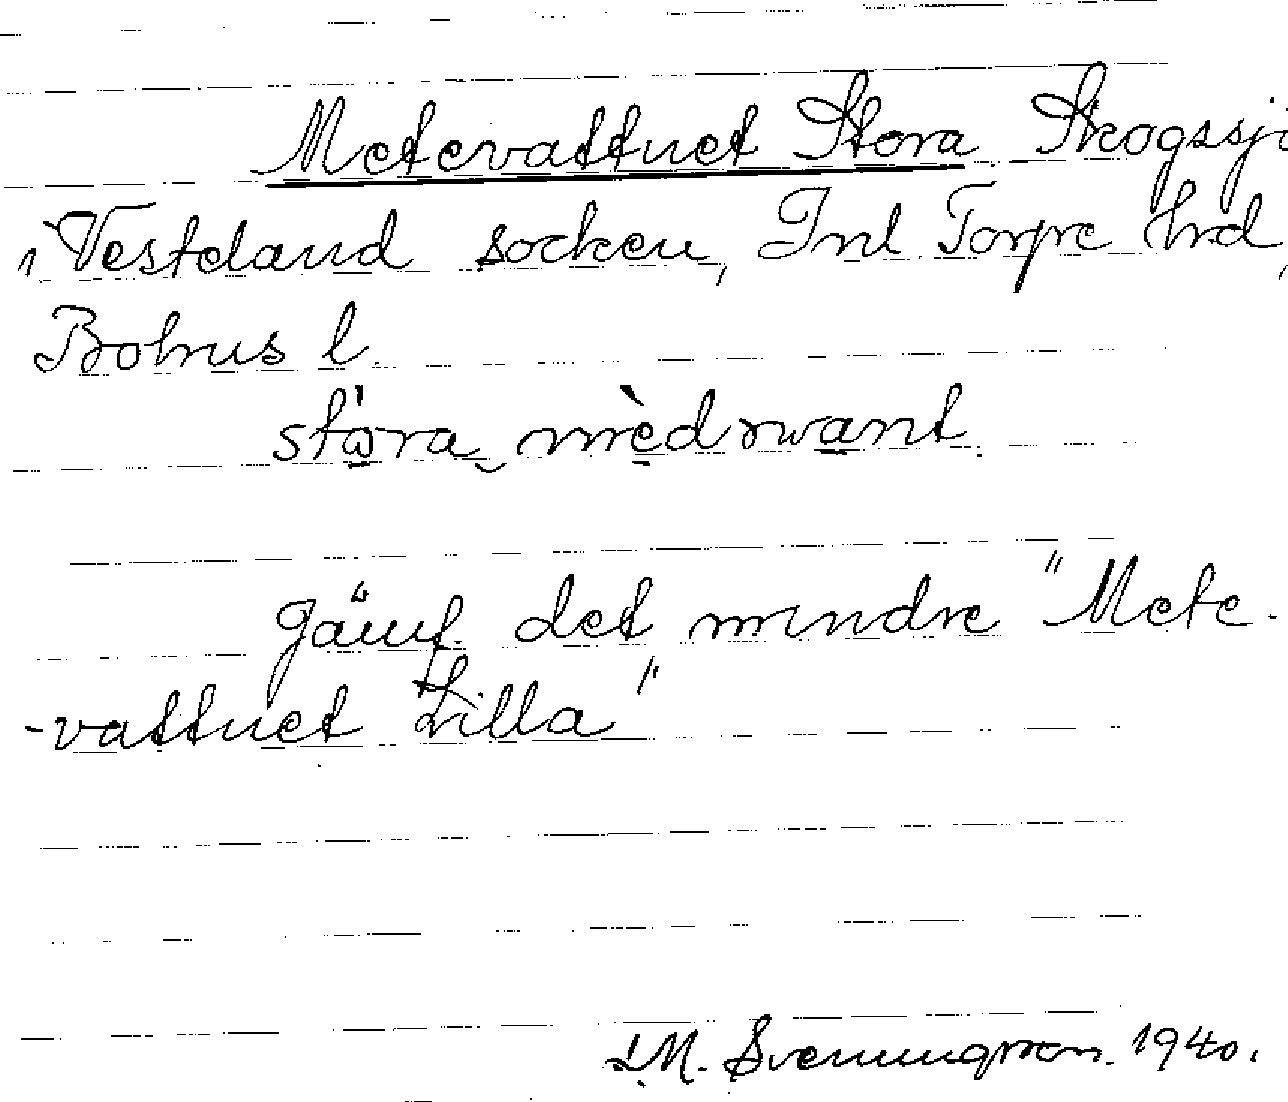 Metevattnet Stora Skogssjö
i Vesteland socken, Inl Torpe hrd,
Bohus l.
stora mèdrwant.
Jämf. det mindre "Mete-
-vattnet Lilla"
J.M. Svenningson. 1940.